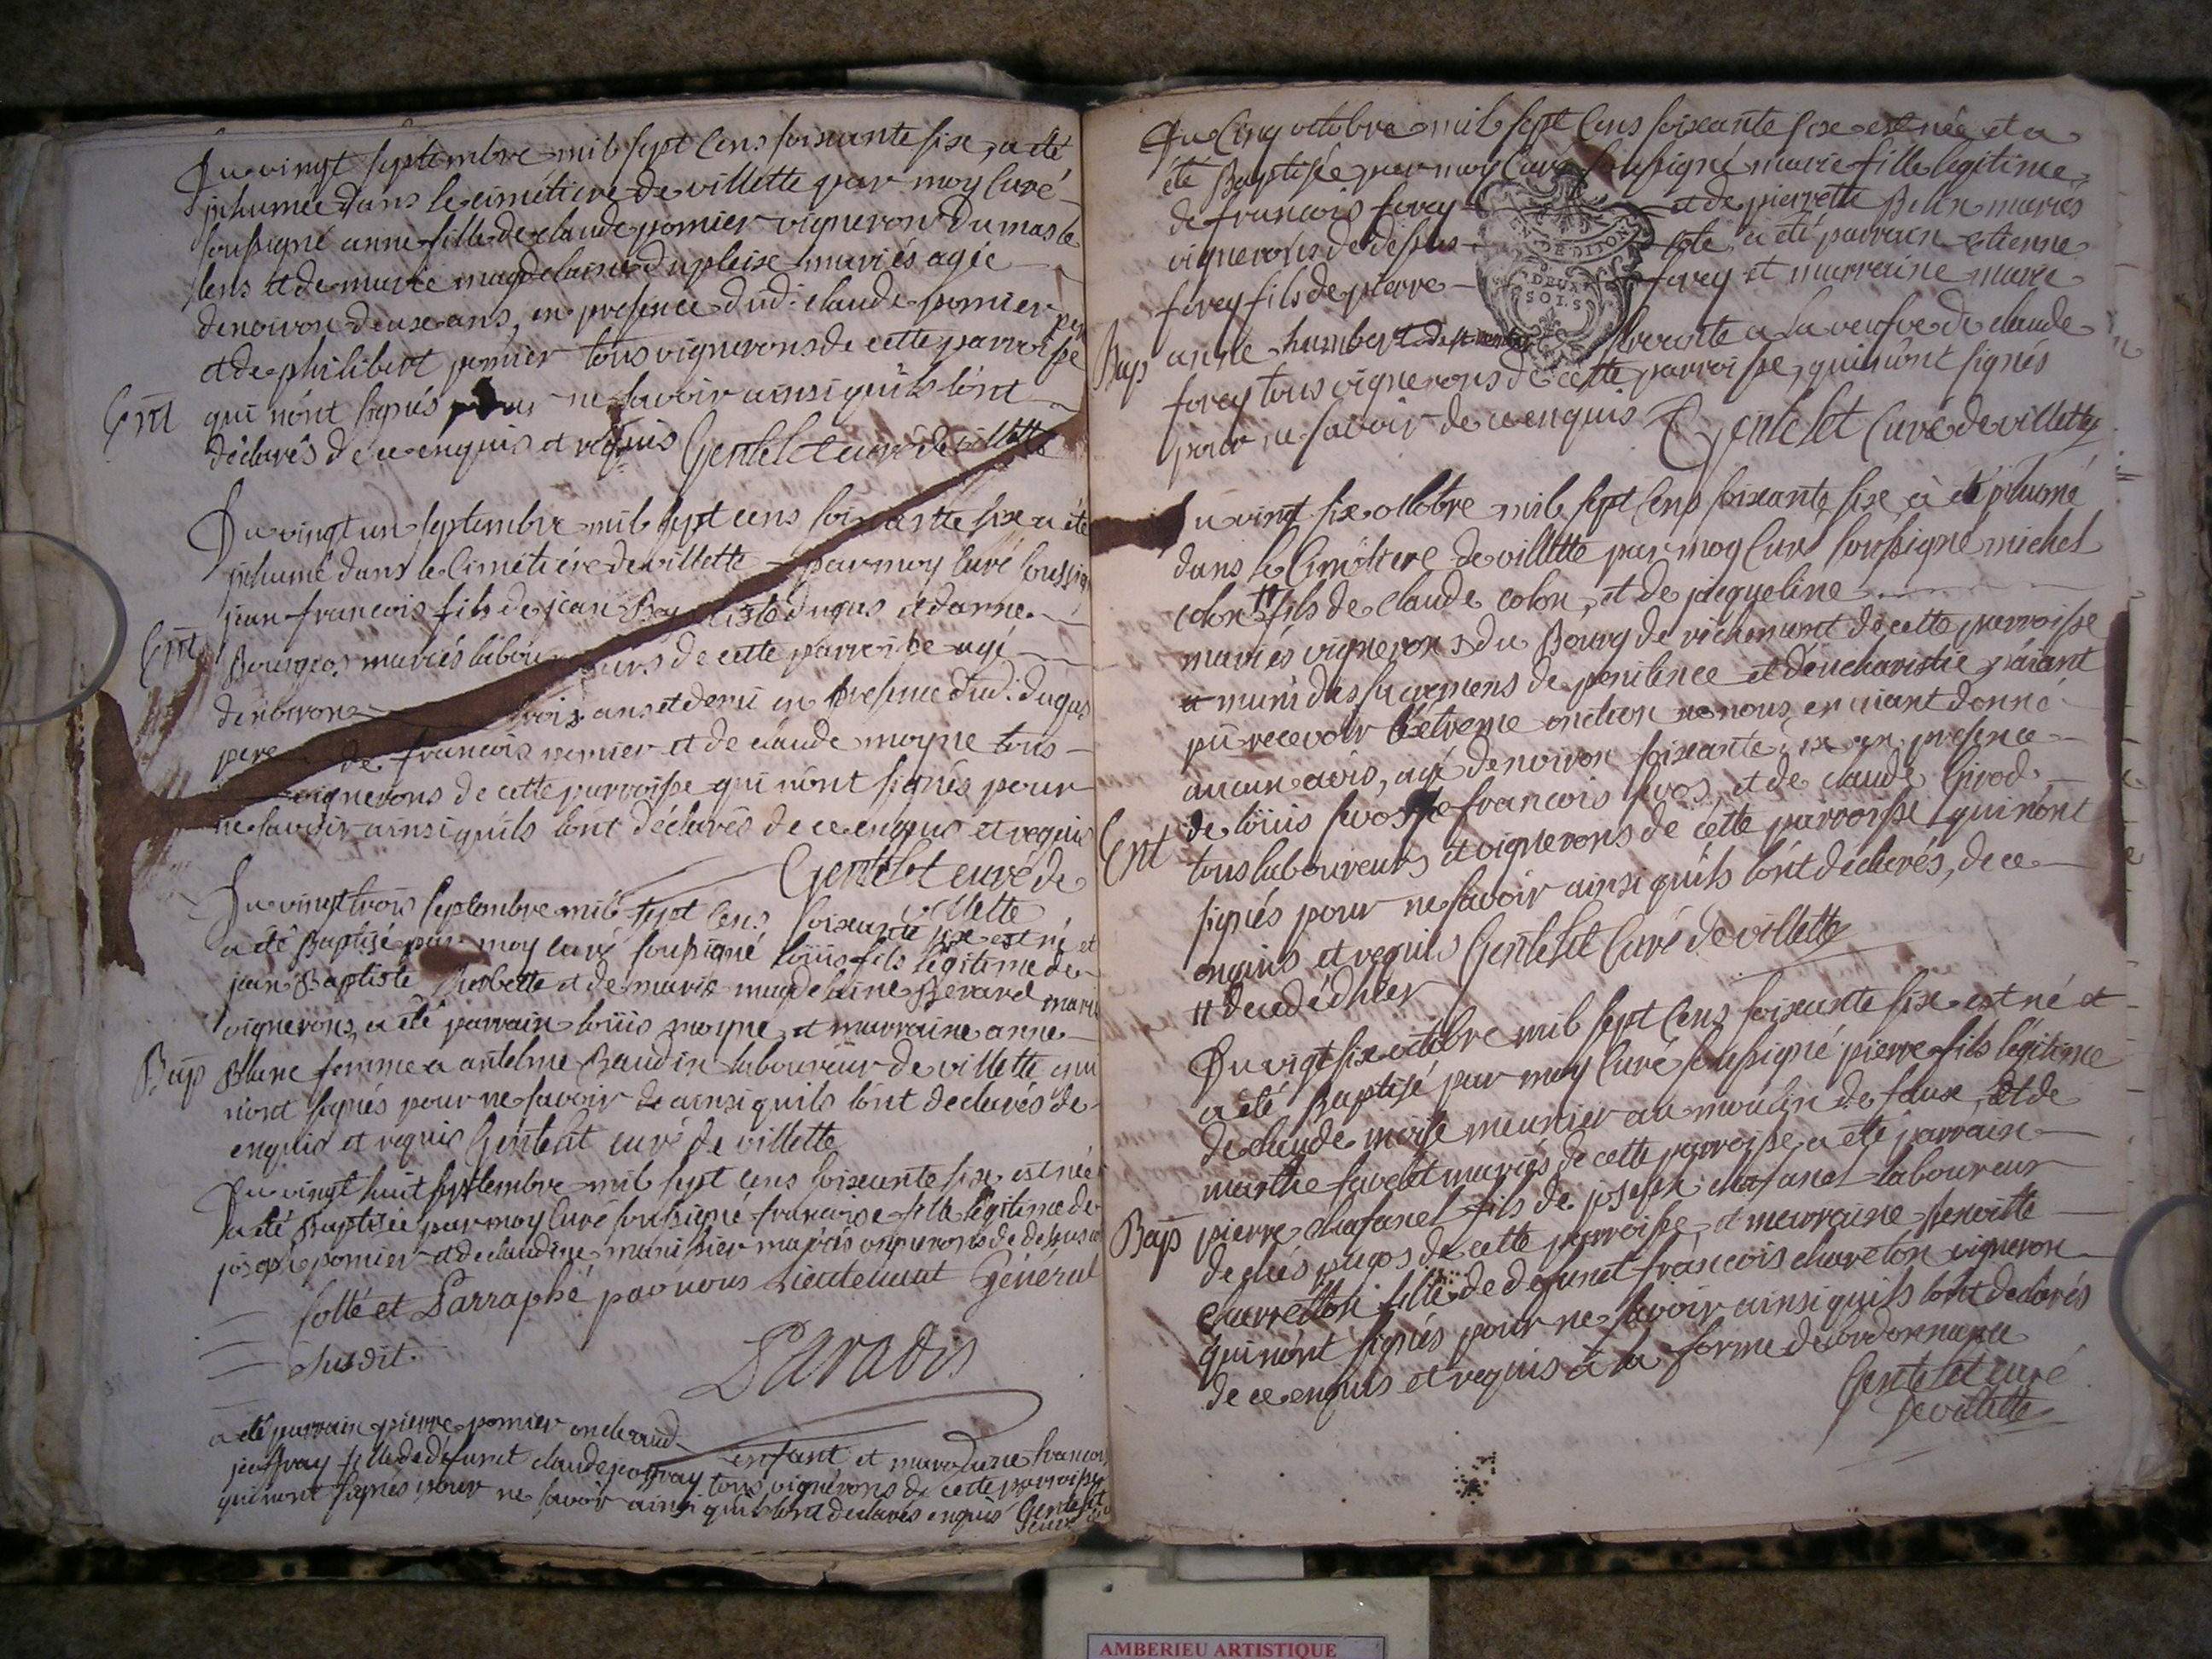 Du vingt septembre mil sept cens soixante six, a été
inhumée dans le cimétiere de villette par moy curé
soussigné anne fille de claude pomier vigneron du mas le
lens et de marie magdelaine dupleix mariés agée
denviron deux ans, en presence dud: claude pomier per
et de philibert pomier tous vignerons de cette parroisse
Ent
qui nónt signés pour ne savoir ainsi quils lont
déclarés de ce enquis et requis Gentelet curé de villette
Du vingt un septembre mil sept cens soixante six a été
inhumé dans le cimétiére de villette par moy curé soussigné
jean francois fils de jean Baptiste dugas et danne
Ent
Bourgeois mariés laboureurs de cette parroisse agé
denviron trois ans et demi en presence dud: dugas
pere de francois pomier et de claude moyne tous
vignerons de cette parroisse qui nónt signés pour
ne savoir ainsi quils lont déclarés de ce enquis et requis
Gentelet curé de
villette
Du vingt trois septembre mil sept cens soixante six est né et
a été Baptisé par moy curé soussigné loüis fils légitime de
jean Baptiste et de marie magdelaine Berard mariés
vignerons, a été parrain loüis moyne et marraine anne
Bap
Blanc femme a antelme Baudin laboureur de villette qui
nont signés pour ne savoir de ainsi quils lónt declarés de
enquis et requis Gentelet curé de villette
Du vingt huit septembre mil sept cens soixante six est née
a été Baptisée par moy curé soussigné francoise fille légitime de
joseph pomier et de claudine mariés vignerons de dessus
Cotté et Parraphé par nous Lieutenant Général
susdit.
Paradis
a été parrain pierre pomier
enfant et marraine francoise
jeoffray fille de défunct claude jeoffray tous vignerons de cette parroisse
qui nont signés pour ne savoir ainsi quils lont declarés enquis Gentelet
curé
Du Cinq octobre mil sept cens soixante six est née et a
été Baptisée par moy curé soussigné marie fille légitime
de francois forey et de pierrette Belin mariés
vignerons de dessus coté a été parrain etienne
forey fils de pierre forey et marraine marie
GEN. DE DIJON
DEUX
SOLS
Bap
anne humbert servante a la veufve de claude
forey tous vignerons de cette parroisse, qui nónt signés
pour ne savoir de ce enquis Gentelet Curé de villette
Du vingt six octobre mil sept cens soixante six a été inhumé
dans le cimétiere de villette par moy curé soussigné michel
colon # fils de claude colon, et de jacqueline
mariés vignerons du Bourg de richemont de cette parroisse
muni des sacremens de penitence et deucharistie naiant
pu recevoir léxtreme onction ne nous en aiant donné
aucun avis, agé denviron soixante six an, presence
de loüis de francois et de claude Girod
Ent
tous laboureurs et vignerons de cétte parroisse qui nónt
signés pour ne savoir ainsi quils lónt declarés, de ce
enquis et requis Gentelet Curé de villette
# decedé dhier
Du vigt six octobre mil sept cens soixante six est né et
a été Baptisé par moy curé soussigné pierre fils légitime
de claude moyse meunier au moulin de faux, et de
marthe favelet mariés de cette parroisse a été parrain
Bap
pierre chafanel fils de joseph chafanel laboureur
de cette parroisse, et marraine Benoitte
charreton fille de defunct francois chareton vigneron
qui nónt signés pour ne savoir ainsi quils lont declarés
de ce enquis et requis à la forme de lordonnance
Gentelet curé
de villette
AMBERIEU ARTISTIQUE